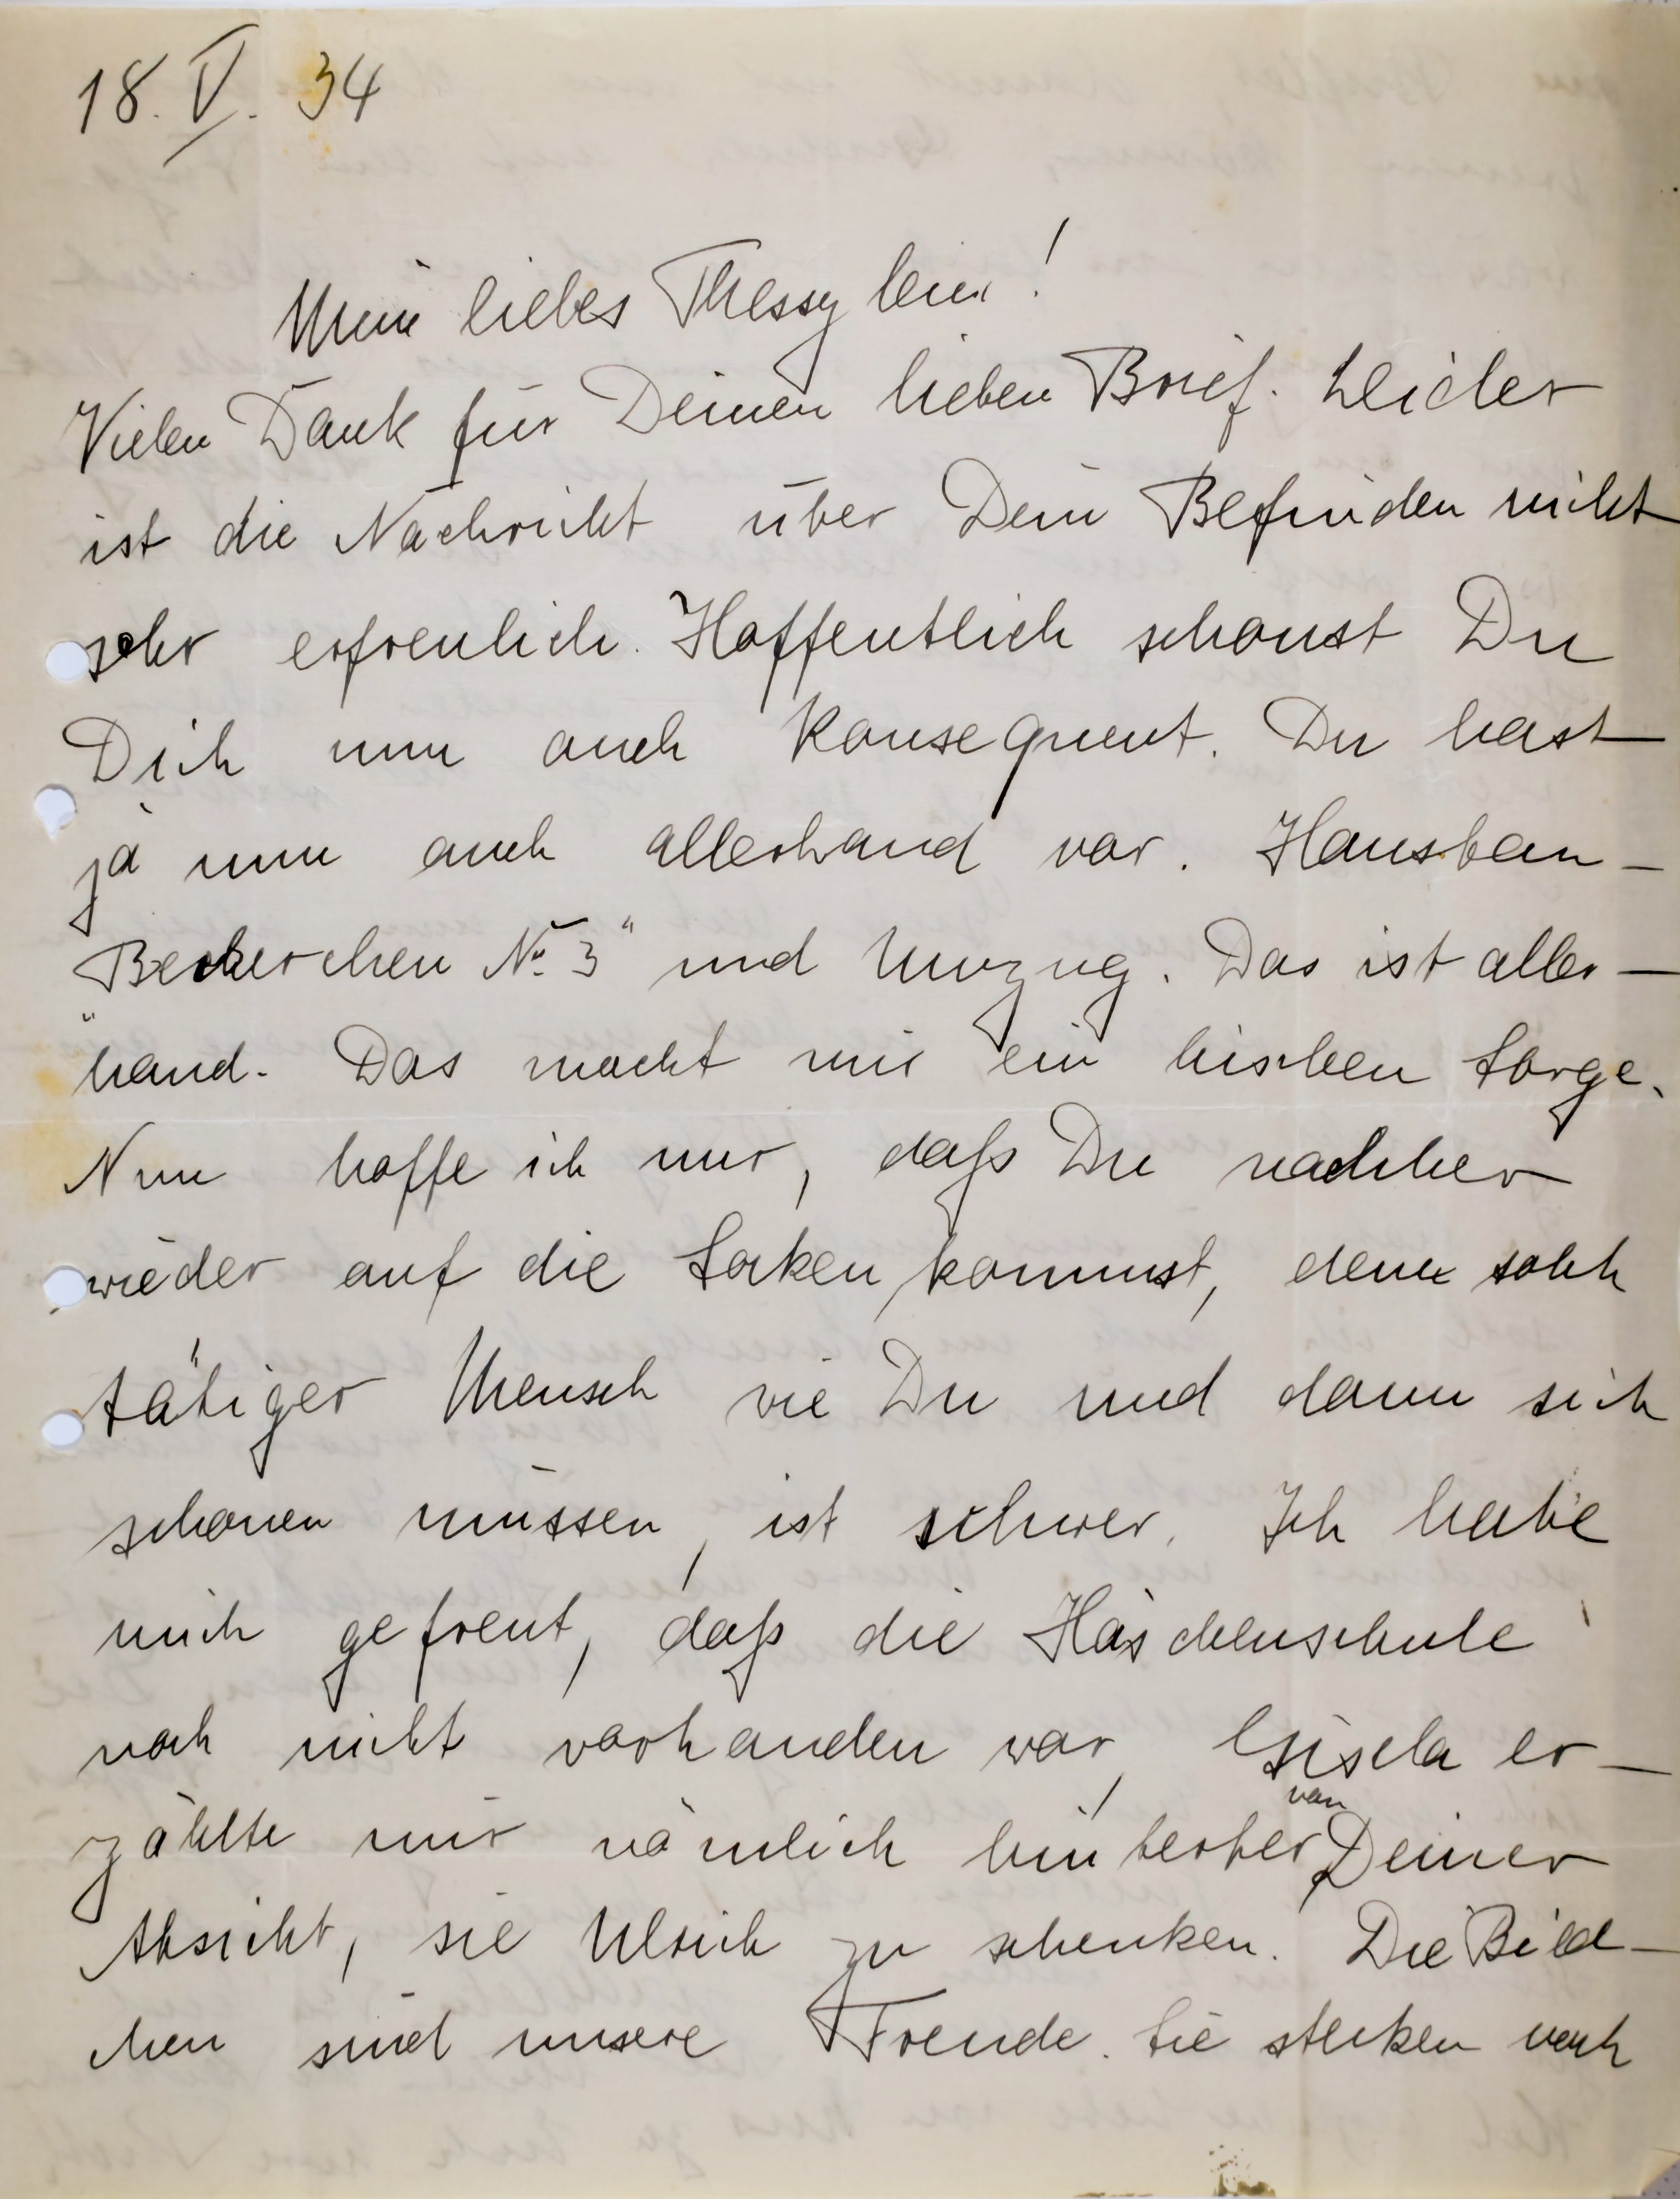 18. V. 34
Mein liebes Thessylein!
Vielen Dank für Deinen lieben Brief. Leider
ist die Nachricht über Dein Befinden nicht
sehr erfreulich. Hoffentlich schonst Du
Dich nun auch konsequent. Du hast
ja nun auch allerhand vor. Hausbau –
"Beckerchen No. 3" und Umzug. Das ist aller–
hand. Das macht mir ein bischen Sorge.
Nun hoffe ich nur, daß Du nachher
wieder auf die Socken kommst, denn solch
tätiger Mensch wie Du und dann sich
schonen müssen, ist schwer. Ich habe
mich gefreut, daß die Häschenschule
noch nicht vorhanden war, Gisela er–
zählte mir nämlich hinterher von Deiner
Absicht, sie Ulrich zu schenken. Die Bild–
chen sind unsere Freude. Sie stecken noch